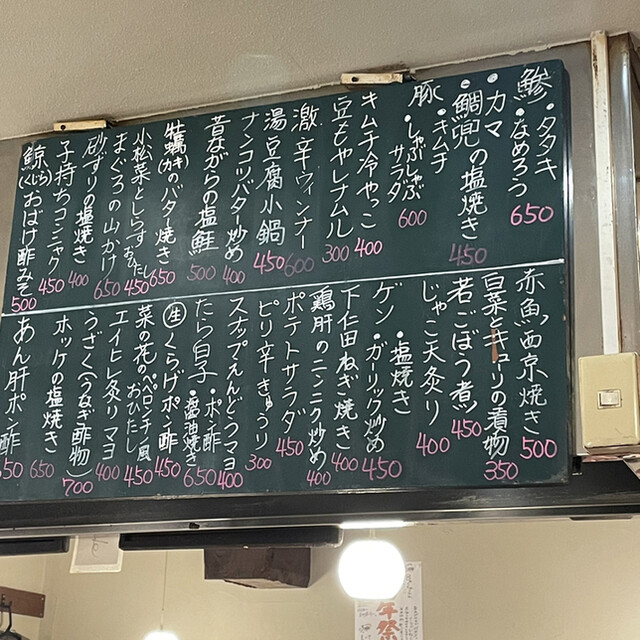 鯵・タタキ
・なめろう 650
・カマ
・鯛兜の塩焼き 450
豚・キムチ
・しゃぶしゃぶサラダ 600
キムチ冷やっこ 400
豆もやしナムル 300
激辛ウィンナー 600
湯豆腐小鍋 450
ナンコツバター炒め 400
昔ながらの塩鮭 500
牡蠣(カキ)のバター焼き 650
小松菜としらすおひたし 450
まぐろの山かけ 650
砂ずりの塩焼き 400
子持ちコンニャク 450
鯨(くじら)おばけ酢みそ 500
赤魚西京焼き 500
白菜とキューリの漬物 350
若ごぼう煮 450
じゃこ天炙り 400
ゲソ・塩焼き
・ガーリック炒め 450
下仁田ねぎ焼き 400
鶏肝のニンニク炒め 400
ポテトサラダ 450
ピリ辛きゅうり 300
スナップえんどうマヨ 400
たら白子・ポン酢
・醤油焼き 650
生くらげポン酢 450
菜の花のペペロンチーノ風
おひたし 450
エイヒレ炙りマヨ 400
うざく(うなぎ酢物) 700
ホッケの塩焼き 650
あん肝ポン酢 650